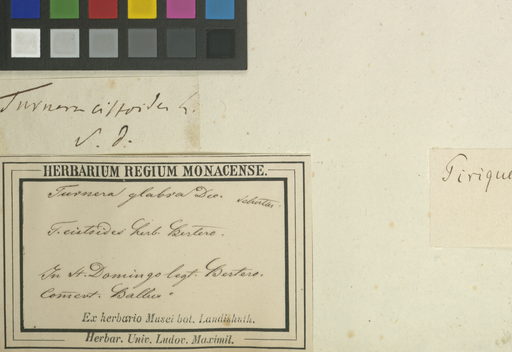 Turnera cistoides L.
S. D.
HERBARIUM REGIUM MONACENSE.
Turnera glabra Dec.
T. cistoides herb. Bertero.
In St. Domingo legt. Bertero.
Coment. Balbis
Ex herbario Musei bot. Landishuth.
Herbar. Univ. Ludov. Maximil.
Pirique